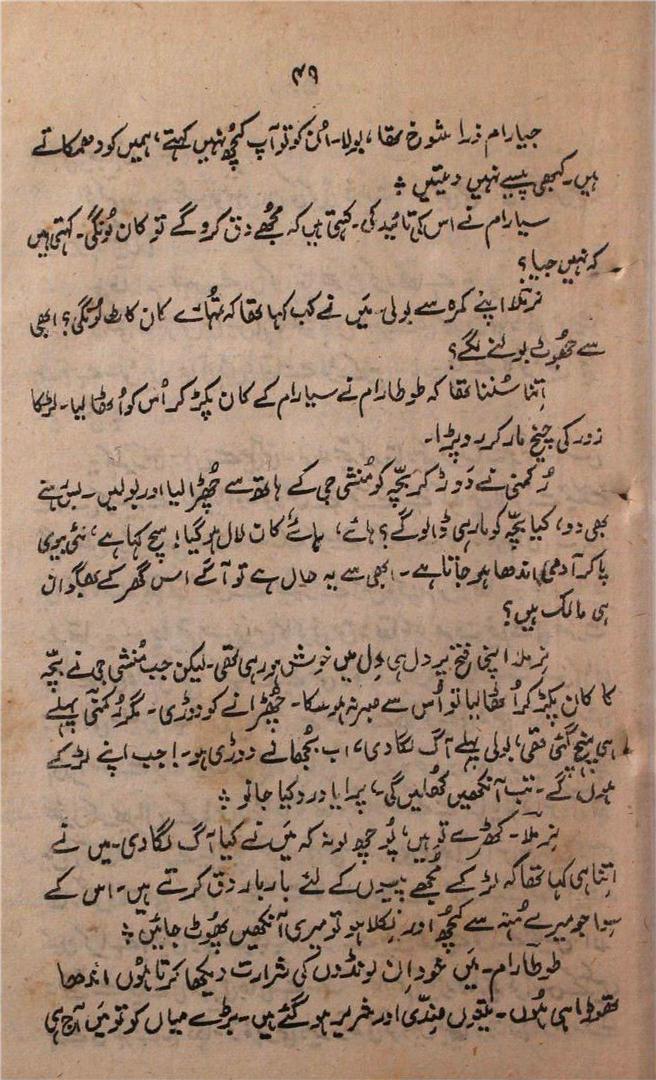 ۴۹
جیارام ذرا شوخ تھا، بولا۔ اُن کو تو آپ کچھ نہیں کہتے، ہمیں کو دھمکاتے
ہیں۔ کبھی پیسے نہیں دیتیں ؞
سیارام نے اس کی تائید کی۔ کہتی ہیں کہ مجھے دق کروگے تو کان لونگی۔ کہتی ہیں
کہ نہیں جیا؟
نرملا اپنے کمرہ سے بولی۔ میں نے کب کہا تھا کہ تمہارے کان کاٹ لونگی؟ ابھی
سے جھوٹ بولنے لگے؟
اِتنا سُننا تھا کہ طوطارام نے سیارام کے کان پکڑ کر اُس کو اُٹھا لیا۔ لڑکا
زور کی چیخ مار کر رو پڑا۔
رُکمنی نے دَوڑ کر بچّہ کو مُنشی جی کے ہاتھ سے چُھڑا لیا اور بولیں۔ بس رہنے
بھی دو، کیا بچّہ کو مار ہی ڈالوگے؟ ہائے، ہائے کان لال ہو گیا! سچ کہا ہے، نئی بیوی
پاکر آدمی اندھا ہو جاتا ہے۔ ابھی سے یہ حال ہے تو آگے اس گھر کے بھگوان
ہی مالک ہیں؟
نرملا اپنی فتح پر دل ہی دِل میں خوش ہو رہی تھی۔ لیکن جب مُنشی جی نے بچّہ
کا کان پکڑ کر اُٹھا لیا تو اُس سے صبر نہ ہو سکا۔ چُھڑانے کو دوڑی۔ مگر رُکمنی پہلے
ہی پہنچ گئی تھی، بولی پہلے آگ لگا دی، اب بُجھانے دوڑی ہو۔! جب اپنے لڑکے
ہوں گے۔ تب آنکھیں کُھلیں گی، پرایا درد کیا جانو ؞
نرملا۔ کھڑے تو ہیں، پُوچھ لو نہ کہ مَیں نے کیا آگ لگا دی۔ میں نے
اِتنا ہی کہا تھا کہ لڑکے مُجھے پیسوں کے لئے بار بار دق کرتے ہیں۔ اس کے
سوا جو میرے مُنہ سے کچھ اور نِکلا ہو تو میری آنکھیں پھوٹ جائیں ؞
طوطارام۔ مَیں خود اِن لونڈوں کی شرارت دیکھا کرتا ہوں اندھا
تھوڑا ہی ہوں۔ تینوں ضِدّی اور شریر ہو گئے ہیں۔ بڑے میاں کو تو مَیں آج ہی